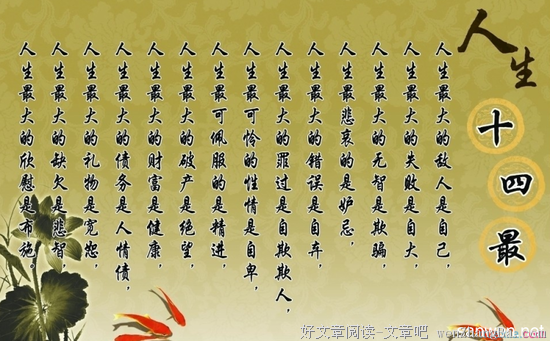 人生
十四最
人生最大的敌人是自己，
人生最大的失败是自大，
人生最大的无智是欺骗，
人生最悲哀的是妒忌，
人生最大的错误是自弃，
人生最大的罪过是自欺欺人，
人生最可怜的性情是自卑，
人生最可佩服的是精进，
人生最大的破产是绝望，
人生最大的财富是健康，
人生最大的债务是人情债，
人生最大的礼物是宽恕，
人生最大的缺欠是悲智，
人生最大的欣慰是布施。
好文章阅读-文章吧